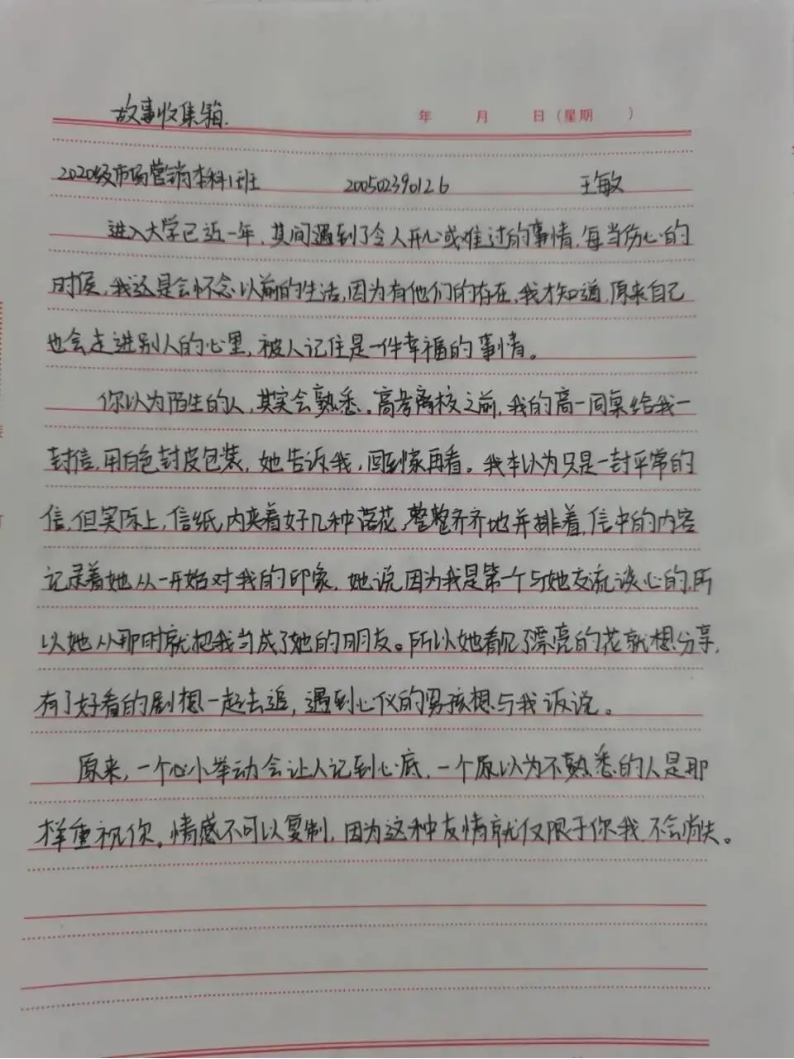 故事收集箱.
年 月 日(星期 )
2020级市场营销本科1班 200502390126 王敏
进入大学已近一年,其间遇到了令人开心或难过的事情,每当伤心的
时候,我还是会怀念以前的生活,因为有他们的存在,我才知道,原来自己
也会走进别人的心里,被人记住是一件幸福的事情。
你以为陌生的人,其实会熟悉。高考离校之前,我的高一同桌给我一
封信,用白色封皮包装,她告诉我,回到家再看。我本以为只是一封平常的
信,但实际上,信纸内夹着好几种落花,整整齐齐地并排着,信中的内容
记录着她从一开始对我的印象,她说因为我是第个与她交流谈心的,所
以她从那时就把我当成了她的朋友。所以她看见了漂亮的花就想分享,
有了好看的剧想一起去追,遇到心仪的男孩想与我诉说。
原来,一个心小举动会让人记到心底,一个原以为不熟悉的人是那
样重视你。情感不可以复制,因为这种友情就仅限于你我,不会消失。